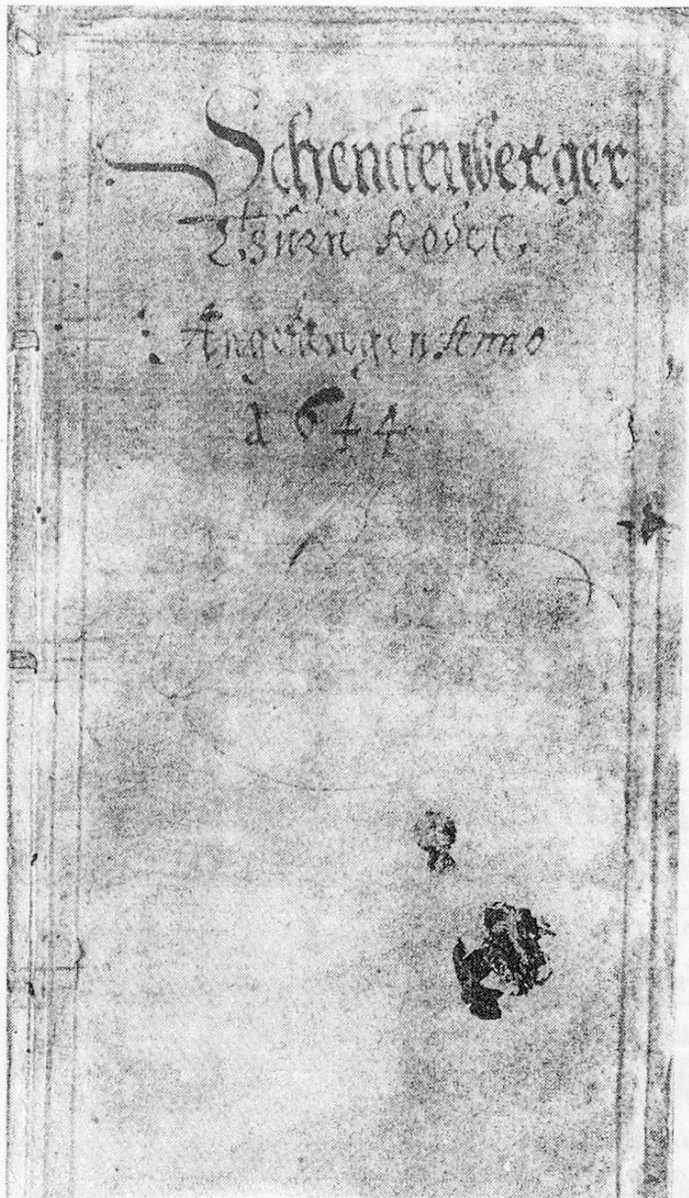 Schenckenberger
Thurn Rodel.
Angefangen Anno
1644